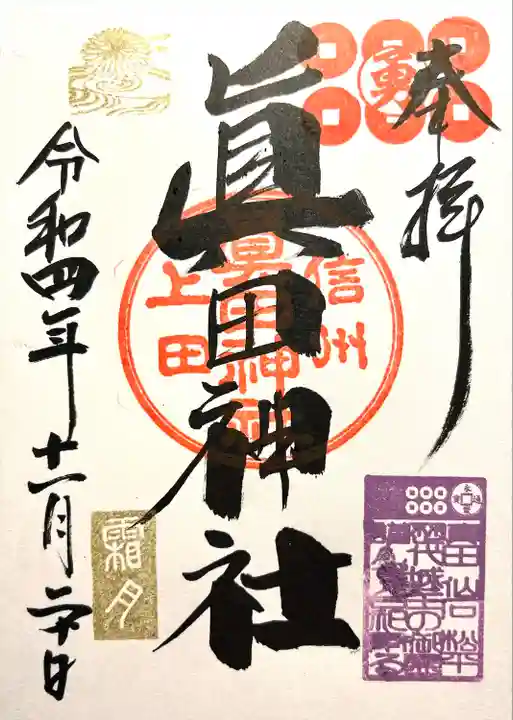 奉拝
勇
眞田神社
信州
眞田神社
上田
令和四年十一月二十日
霜月